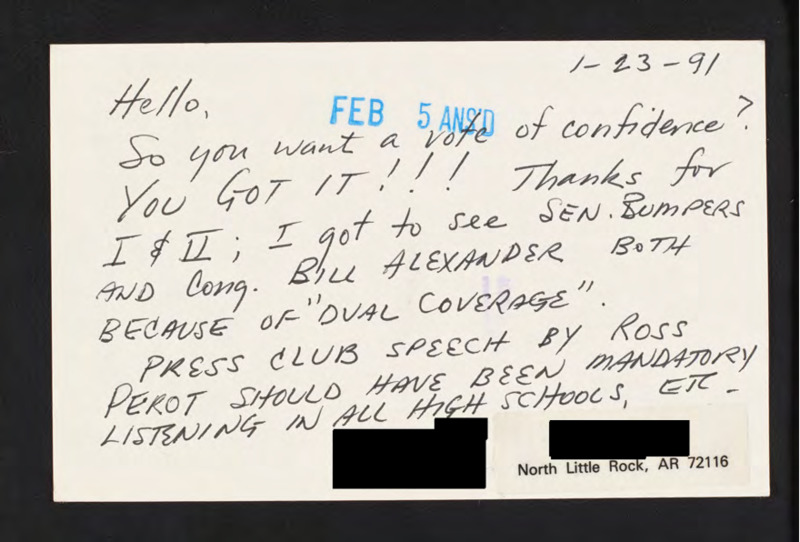 1-23-91
Hello,
FEB 5 ANS'D
So you want a vote of confidence?
YOU GOT IT!!! Thanks for
I & II; I got to see SEN. BUMPERS
AND Cong. BILL ALEXANDER BOTH
BECAUSE OF "DUAL COVERAGE".
PRESS CLUB SPEECH BY ROSS
PEROT SHOULD HAVE BEEN MANDATORY
LISTENING IN ALL HIGH SCHOOLS, ETC-
North Little Rock, AR 72116